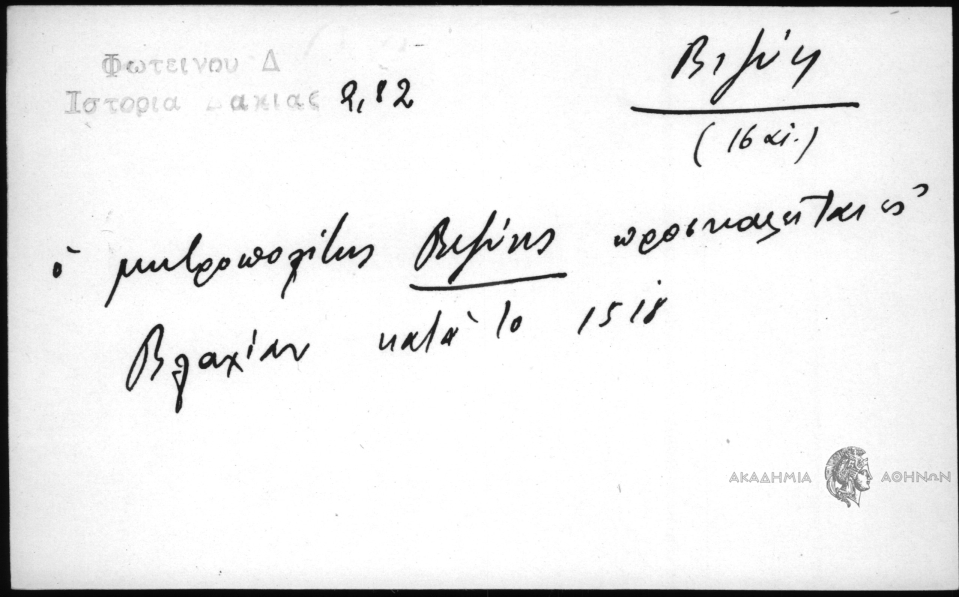 Φωτεινου Δ
Ιστορια Δακιας 2,82
Βιζύη
(16 αι.)
ὁ μητροπολίτης Βιζύης προσκαλεῖται εἰς
Βλαχίαν κατὰ το 1518
ΑΚΑΔΗΜΙΑ ΑΘΗΝΩΝ